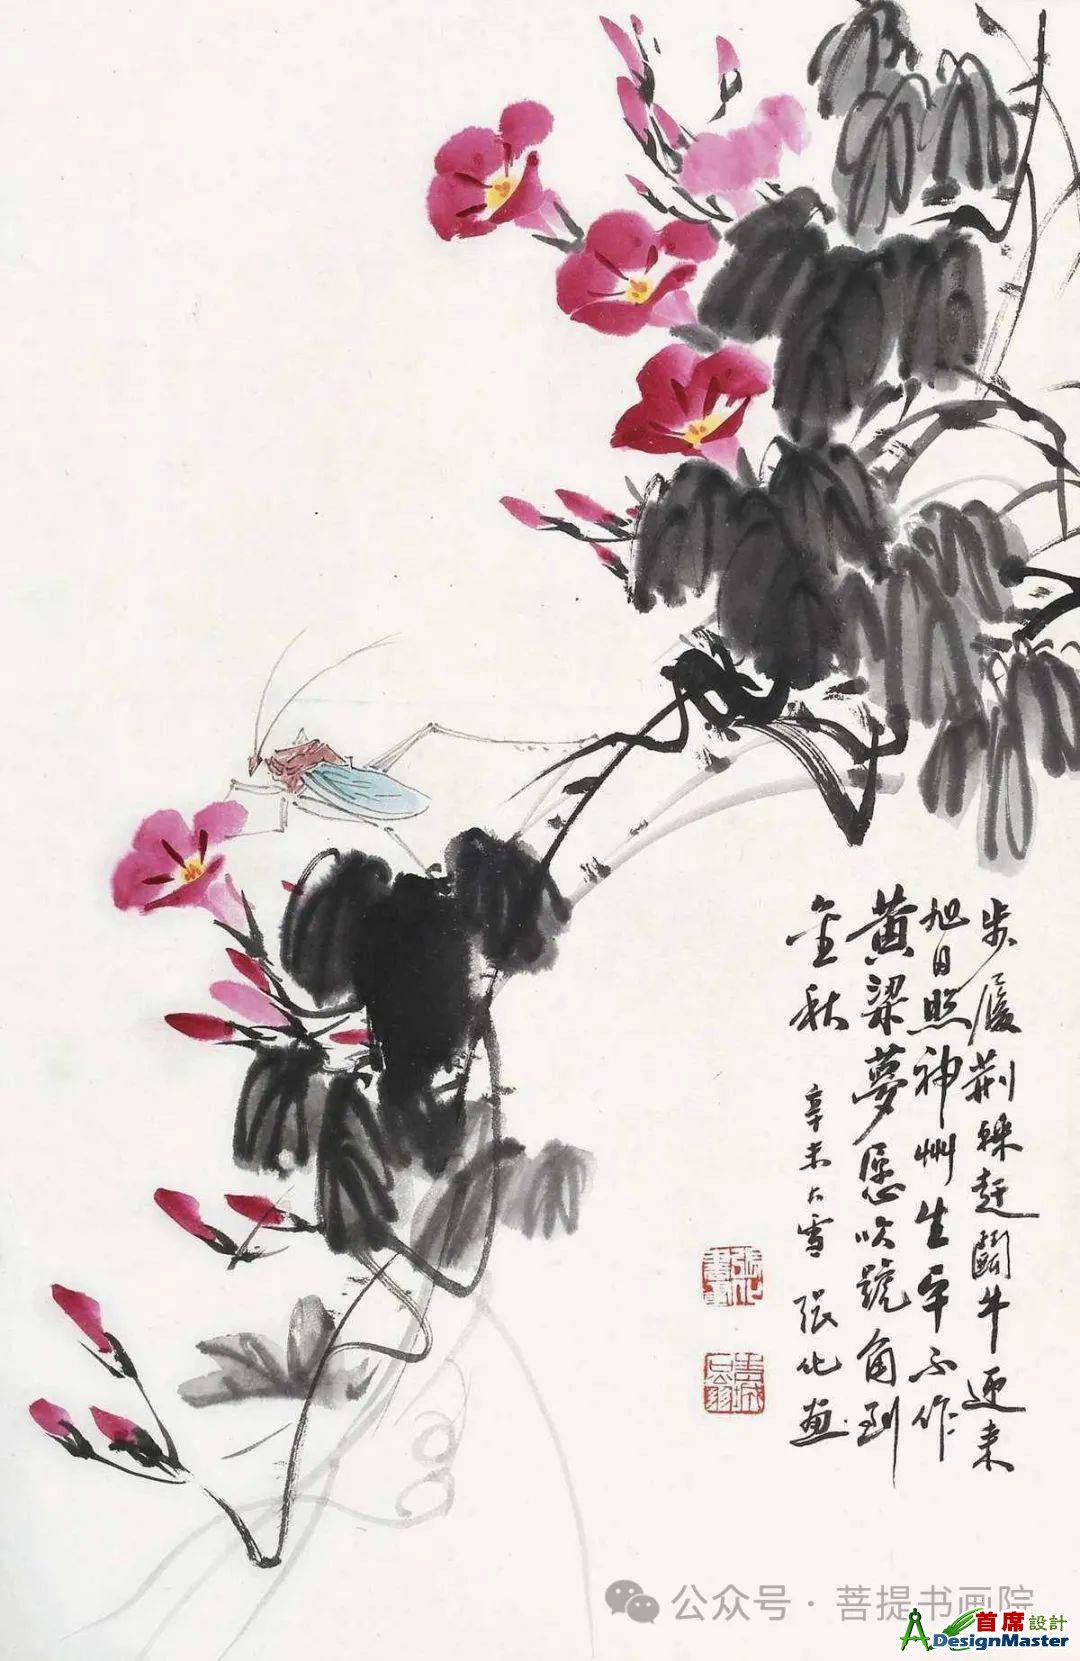 步履荆棘赶斗牛迎来
旭日照神州生平不作
黄粱梦愿吹號角到
金秋
辛未大雪 張化画
公众号·菩提书画院
首席設計
ADesignMaster